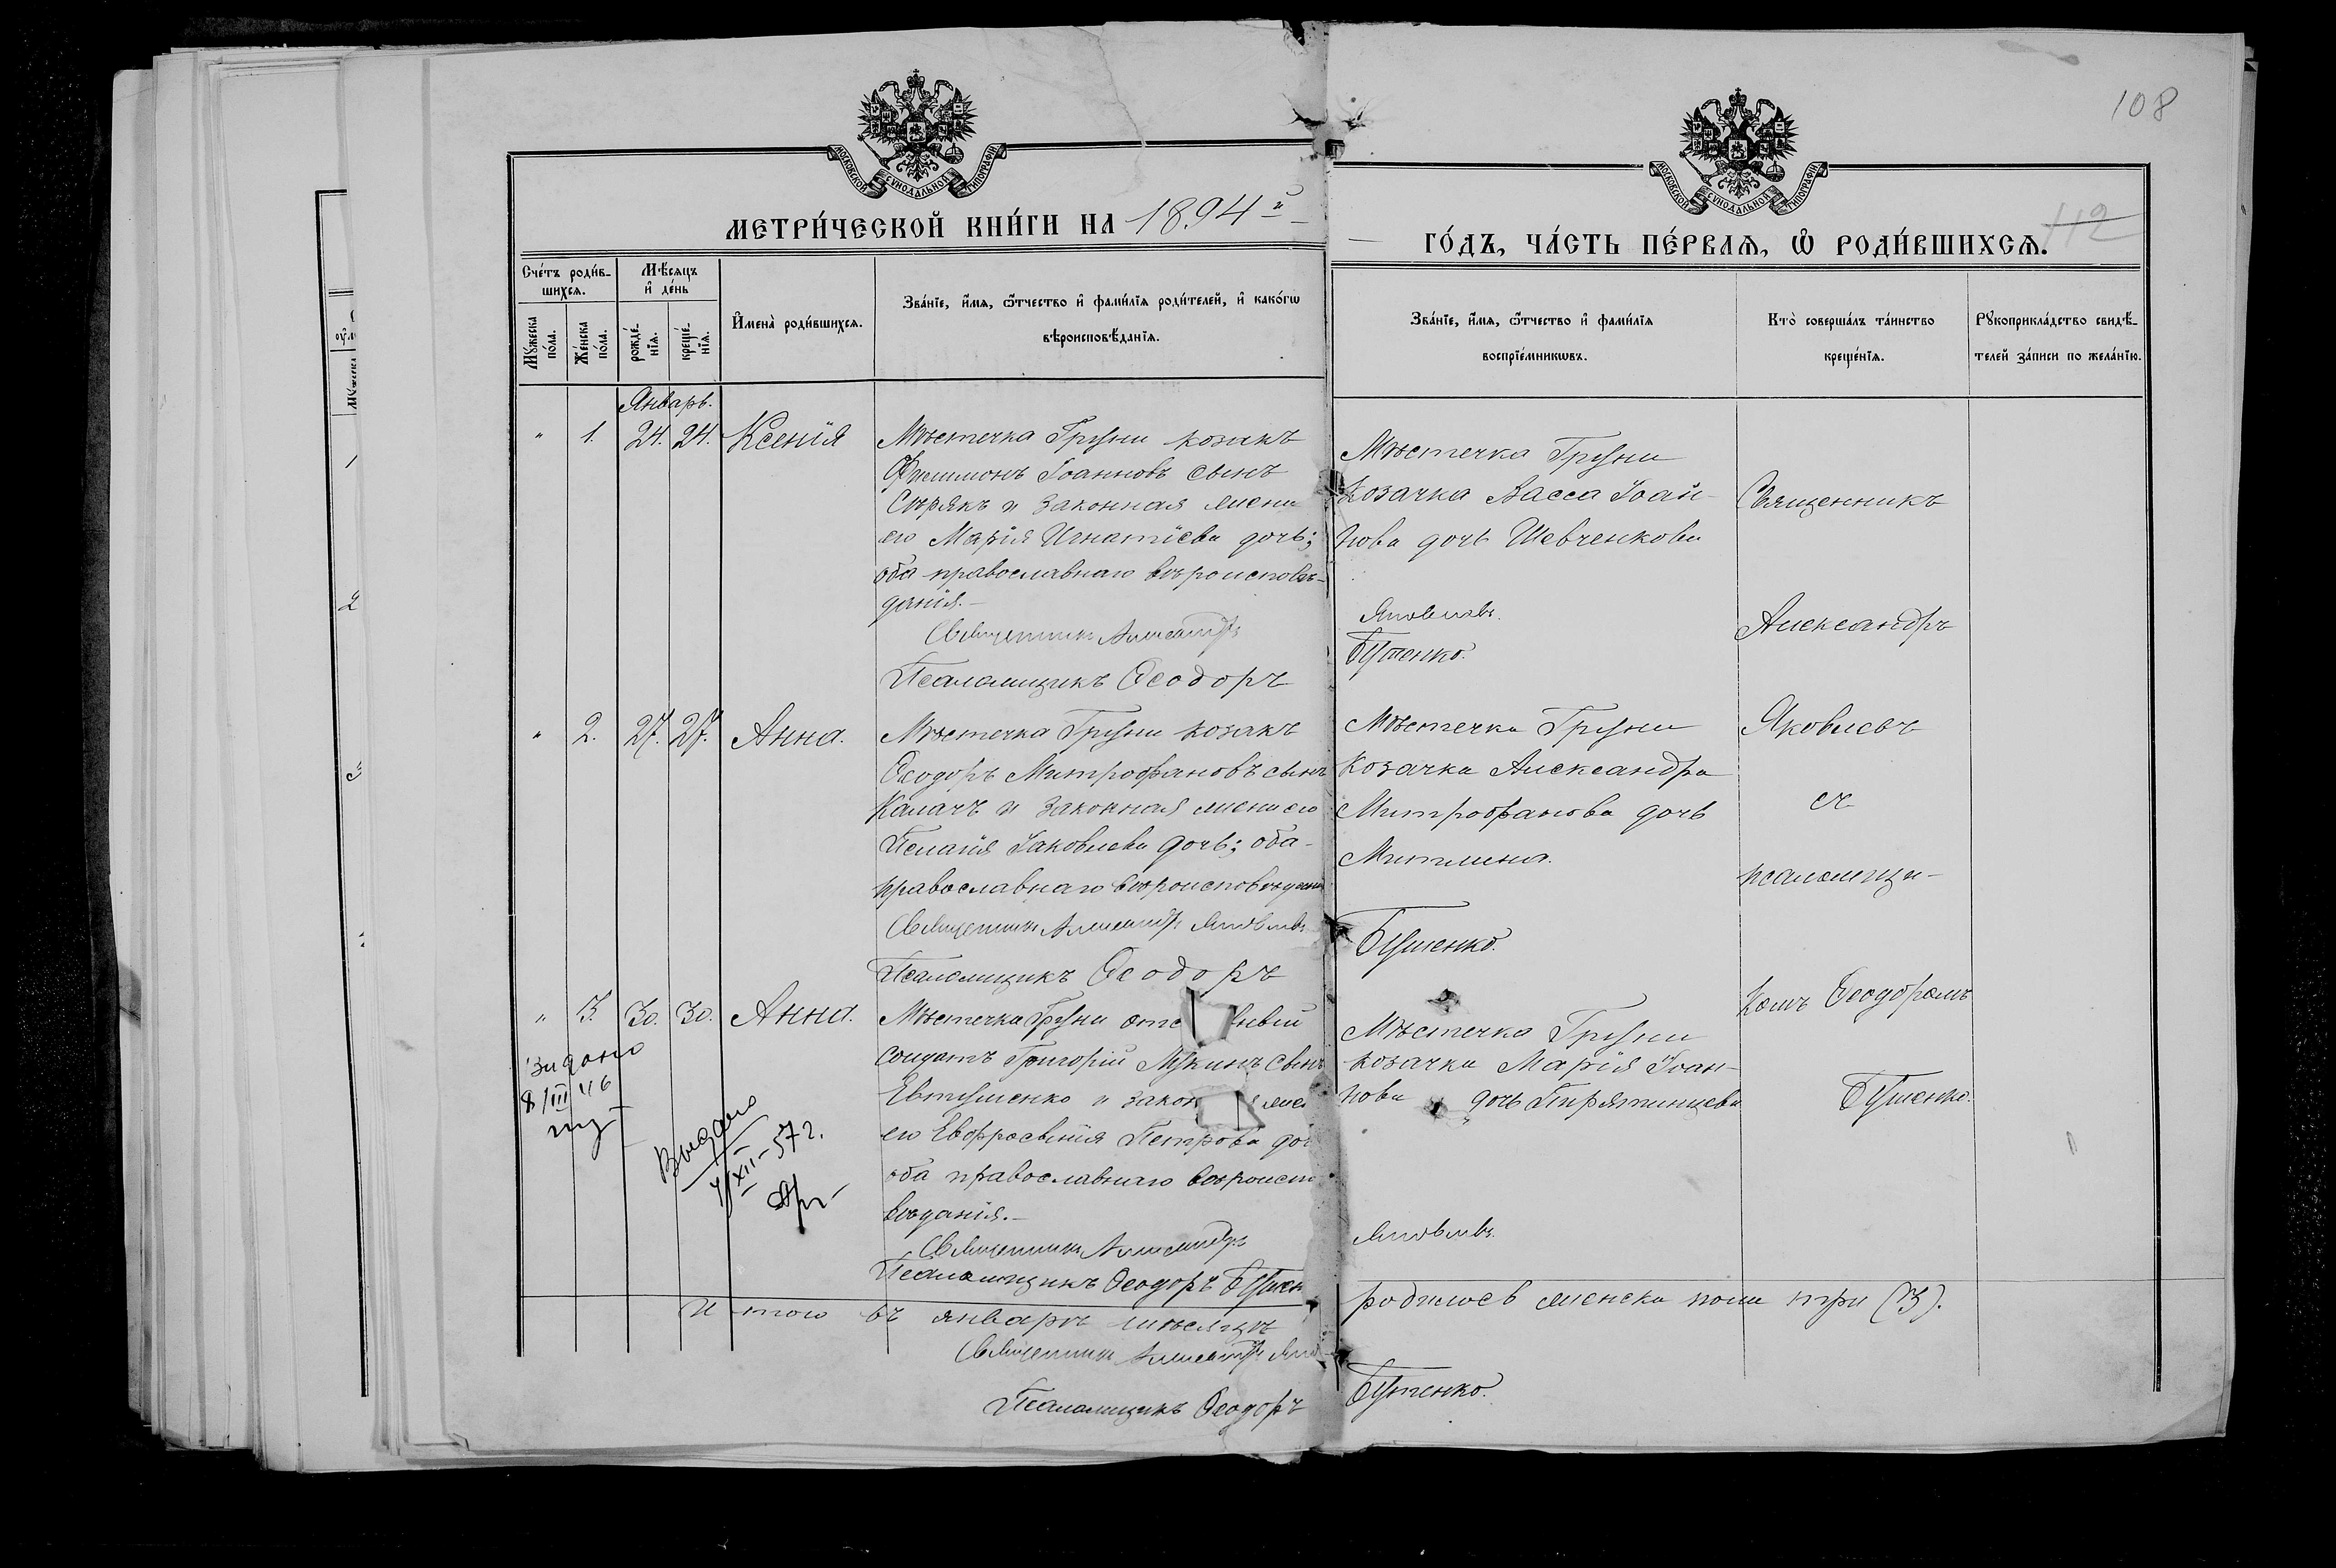 108
МОСКОВСКОЙ СУНОДАЛЬНОЙ ТИПОГРАФІИ
МОСКОВСКОЙ СУНОДАЛЬНОЙ ТИПОГРАФІИ
МЕТРИ́ЧЕСКОЙ КНИ́ГИ НА 1894й
ГО́ДЪ, ЧА́СТЬ ПЕ́РВАѦ, Ѡ҆ РОДИ́ВШИХСѦ.
112
Сче́тъ роди́в-
шихсѧ.
Мѣ́сѧцъ
и҆ де́нь
Мꙋ́жеска
по́ла.
Же́нска
по́ла.
рожде́-
нїѧ.
креще́-
нїѧ.
И҆мена̀ роди́вшихсѧ.
Зва́нїе, и҆́мѧ, ѻ҆́тчество и҆ фами́лїѧ роди́телей, и҆ како́гѡ
вѣроисповѣ́данїѧ.
Зва́нїе, и҆́мѧ, ѻ҆́тчество и҆ фами́лїѧ
воспрїе́мникѡвъ.
Кто̀ соверша́лъ та́инство
креще́нїѧ.
Рꙋкоприкла́дство свидѣ́-
телей за́писи по жела́нїю.
Январь.
" 1. 24. 24. Ксенія
Мѣстечка Груни козакъ
Филимонъ Іоанновъ сынъ
Сѣрякъ и законная жена
его Марія Игнатіева дочь;
оба православнаго вѣроисповѣ-
данія.-
Священникъ Александръ
Псаломщикъ Ѳеодоръ
Мѣстечка Груни
козачка Васса Іоан-
нова дочь Шевченкова
Яковлевъ.
Бутенко.
Священникъ
Александръ
Яковлевъ
съ
псаломщи-
комъ Ѳеодоромъ
Бутенко.
" 2. 27. 27. Анна.
Мѣстечка Груни козакъ
Ѳеодоръ Митрофановъ сынъ
Калачъ и законная жена его
Пелагія Іаковлева дочь; оба
православнаго вѣроисповѣдан
Священникъ Александръ Яковлевъ
Псаломщикъ Ѳеодоръ
Мѣстечка Груни
козачка Александра
Митрофанова дочь
Бутенко.
" 3. 30. 30. Анна.
Мѣстечка Груни отс вный
солдатъ Григорій Лукинъ сынъ
Евтушенко и закон я жен
его Евфросинія Петрова доч
оба православнаго вѣроиспо
вѣданія.-
Священникъ Александръ
Псаломщикъ Ѳеодоръ Бутен
Мѣстечка Груни
козачка Марія Іоан-
нова дочь Пирятинцева
Яковлевъ.
8/III 46
Выдано
4/XII-57 г.
Итого въ январѣ мѣсяцѣ
родилось женска пола три (3).
Священникъ Александръ Яков
Псаломщикъ Ѳеодоръ
Бутенко.